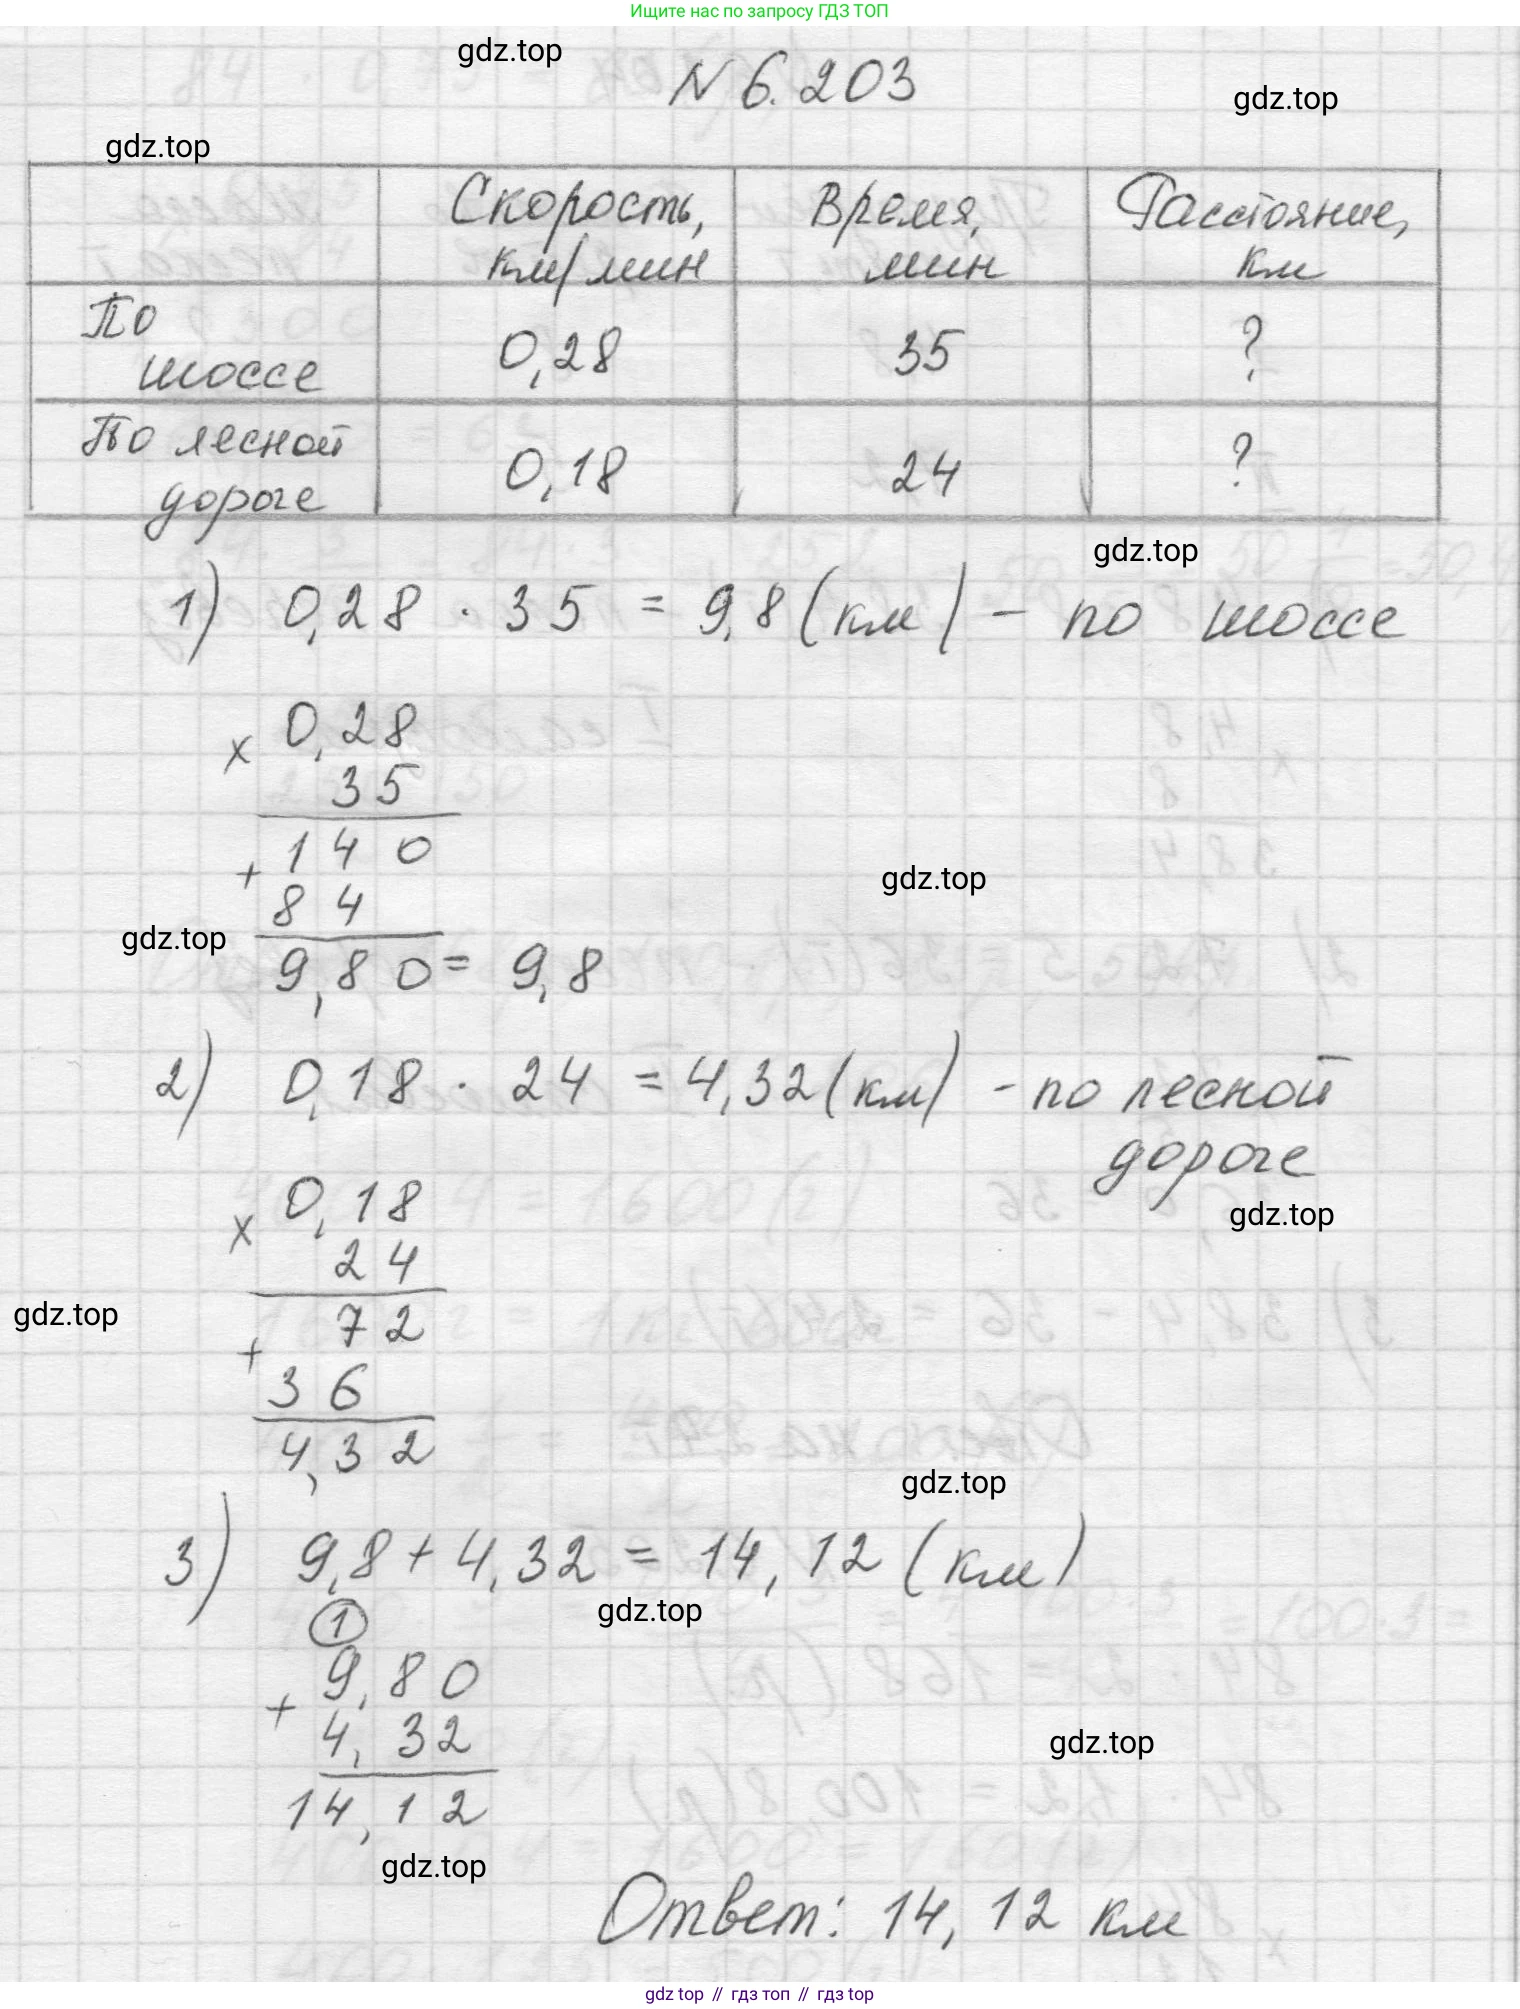 Ищите нас по запросу ГДЗ ТОП
gdz.top
N 6.203
gdz.top
gdz.top
Скорость, км/мин
Время, мин
Расстояние, км
По шоссе
0,28
35
?
По лесной дороге
0,18
24
?
gdz.top
1) 0,28 · 35 = 9,8 (км) – по шоссе
x 0,28
35
140
+
84
gdz.top
gdz.top
9,80 = 9,8
2) 0,18 · 24 = 4,32 (км) – по лесной
дороге
gdz.top
x 0,18
24
gdz.top
72
+
36
4,32
gdz.top
3) 9,8 + 4,32 = 14,12 (км)
gdz.top
1
9,80
+
4,32
gdz.top
14,12
gdz.top
Ответ: 14,12 км
gdz top // гдз топ // гдз top